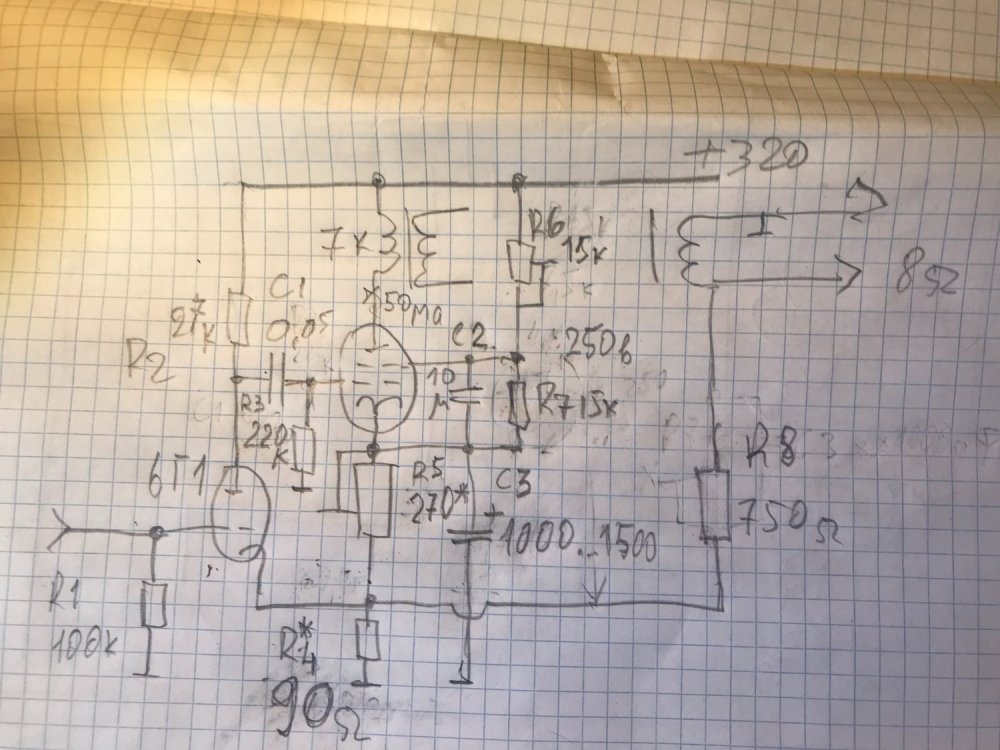 +320
R6
15к
7к
8Ω
C1
50ма
27к
0,05
C2
250в
R2
10
м
R3
220
к
R7 15к
R8
6Г1
R5
270*
C3
+
750Ω
1000...1500
R1
100к
R4*
90Ω